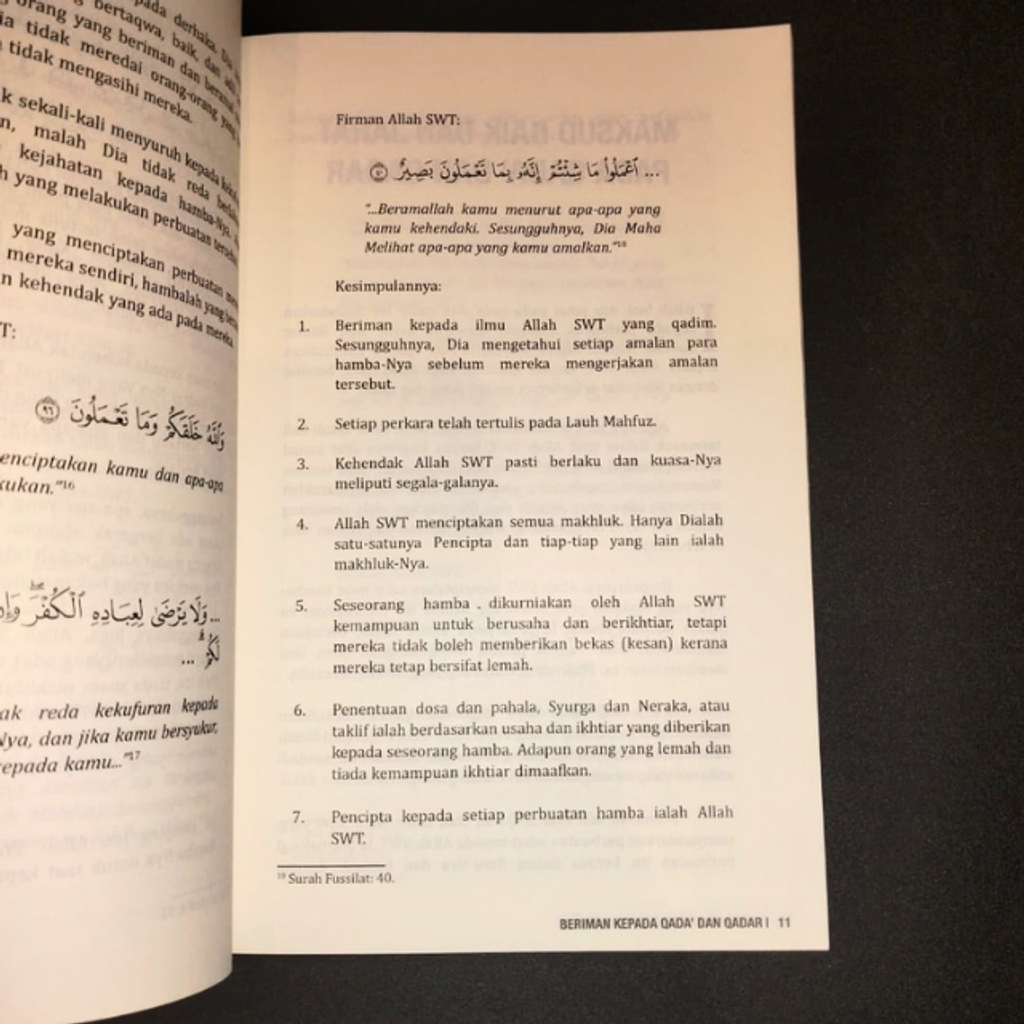 pada derhaka. Dia
bertaqwa, baik, dan adil
orang yang beriman dan beramal
tidak meredai orang-orang yang
tidak mengasihi mereka.
k sekali-kali menyuruh kepada
n, malah Dia tidak reda
kejahatan kepada hamba-Nya.
h yang melakukan perbuatan
yang menciptakan perbuatan
mereka sendiri, hambalah yang
n kehendak yang ada pada mereka
T:
وَٱللَّهُ خَلَقَكُمْ وَمَا تَعْمَلُونَ ٩٦
enciptakan kamu dan apa-apa
kukan."16
...وَلَا يَرْضَىٰ لِعِبَادِهِ ٱلْكُفْرَ ۖ وَإِن
لَكُمْ ۗ ...
ak reda kekufuran kepada
Nya, dan jika kamu bersyukur,
epada kamu..."17
Firman Allah SWT:
... ٱعْمَلُوا۟ مَا شِئْتُمْ إِنَّهُۥ بِمَا تَعْمَلُونَ بَصِيرٌ ٤٠
"...Beramallah kamu menurut apa-apa yang
kamu kehendaki. Sesungguhnya, Dia Maha
Melihat apa-apa yang kamu amalkan."18
Kesimpulannya:
1. Beriman kepada ilmu Allah SWT yang qadim.
Sesungguhnya, Dia mengetahui setiap amalan para
hamba-Nya sebelum mereka mengerjakan amalan
tersebut.
2. Setiap perkara telah tertulis pada Lauh Mahfuz.
3. Kehendak Allah SWT pasti berlaku dan kuasa-Nya
meliputi segala-galanya.
4. Allah SWT menciptakan semua makhluk. Hanya Dialah
satu-satunya Pencipta dan tiap-tiap yang lain ialah
makhluk-Nya.
5. Seseorang hamba dikurniakan oleh Allah SWT
kemampuan untuk berusaha dan berikhtiar, tetapi
mereka tidak boleh memberikan bekas (kesan) kerana
mereka tetap bersifat lemah.
6. Penentuan dosa dan pahala, Syurga dan Neraka, atau
taklif ialah berdasarkan usaha dan ikhtiar yang diberikan
kepada seseorang hamba. Adapun orang yang lemah dan
tiada kemampuan ikhtiar dimaafkan.
7. Pencipta kepada setiap perbuatan hamba ialah Allah
SWT.
18 Surah Fussilat: 40.
BERIMAN KEPADA QADA' DAN QADAR | 11